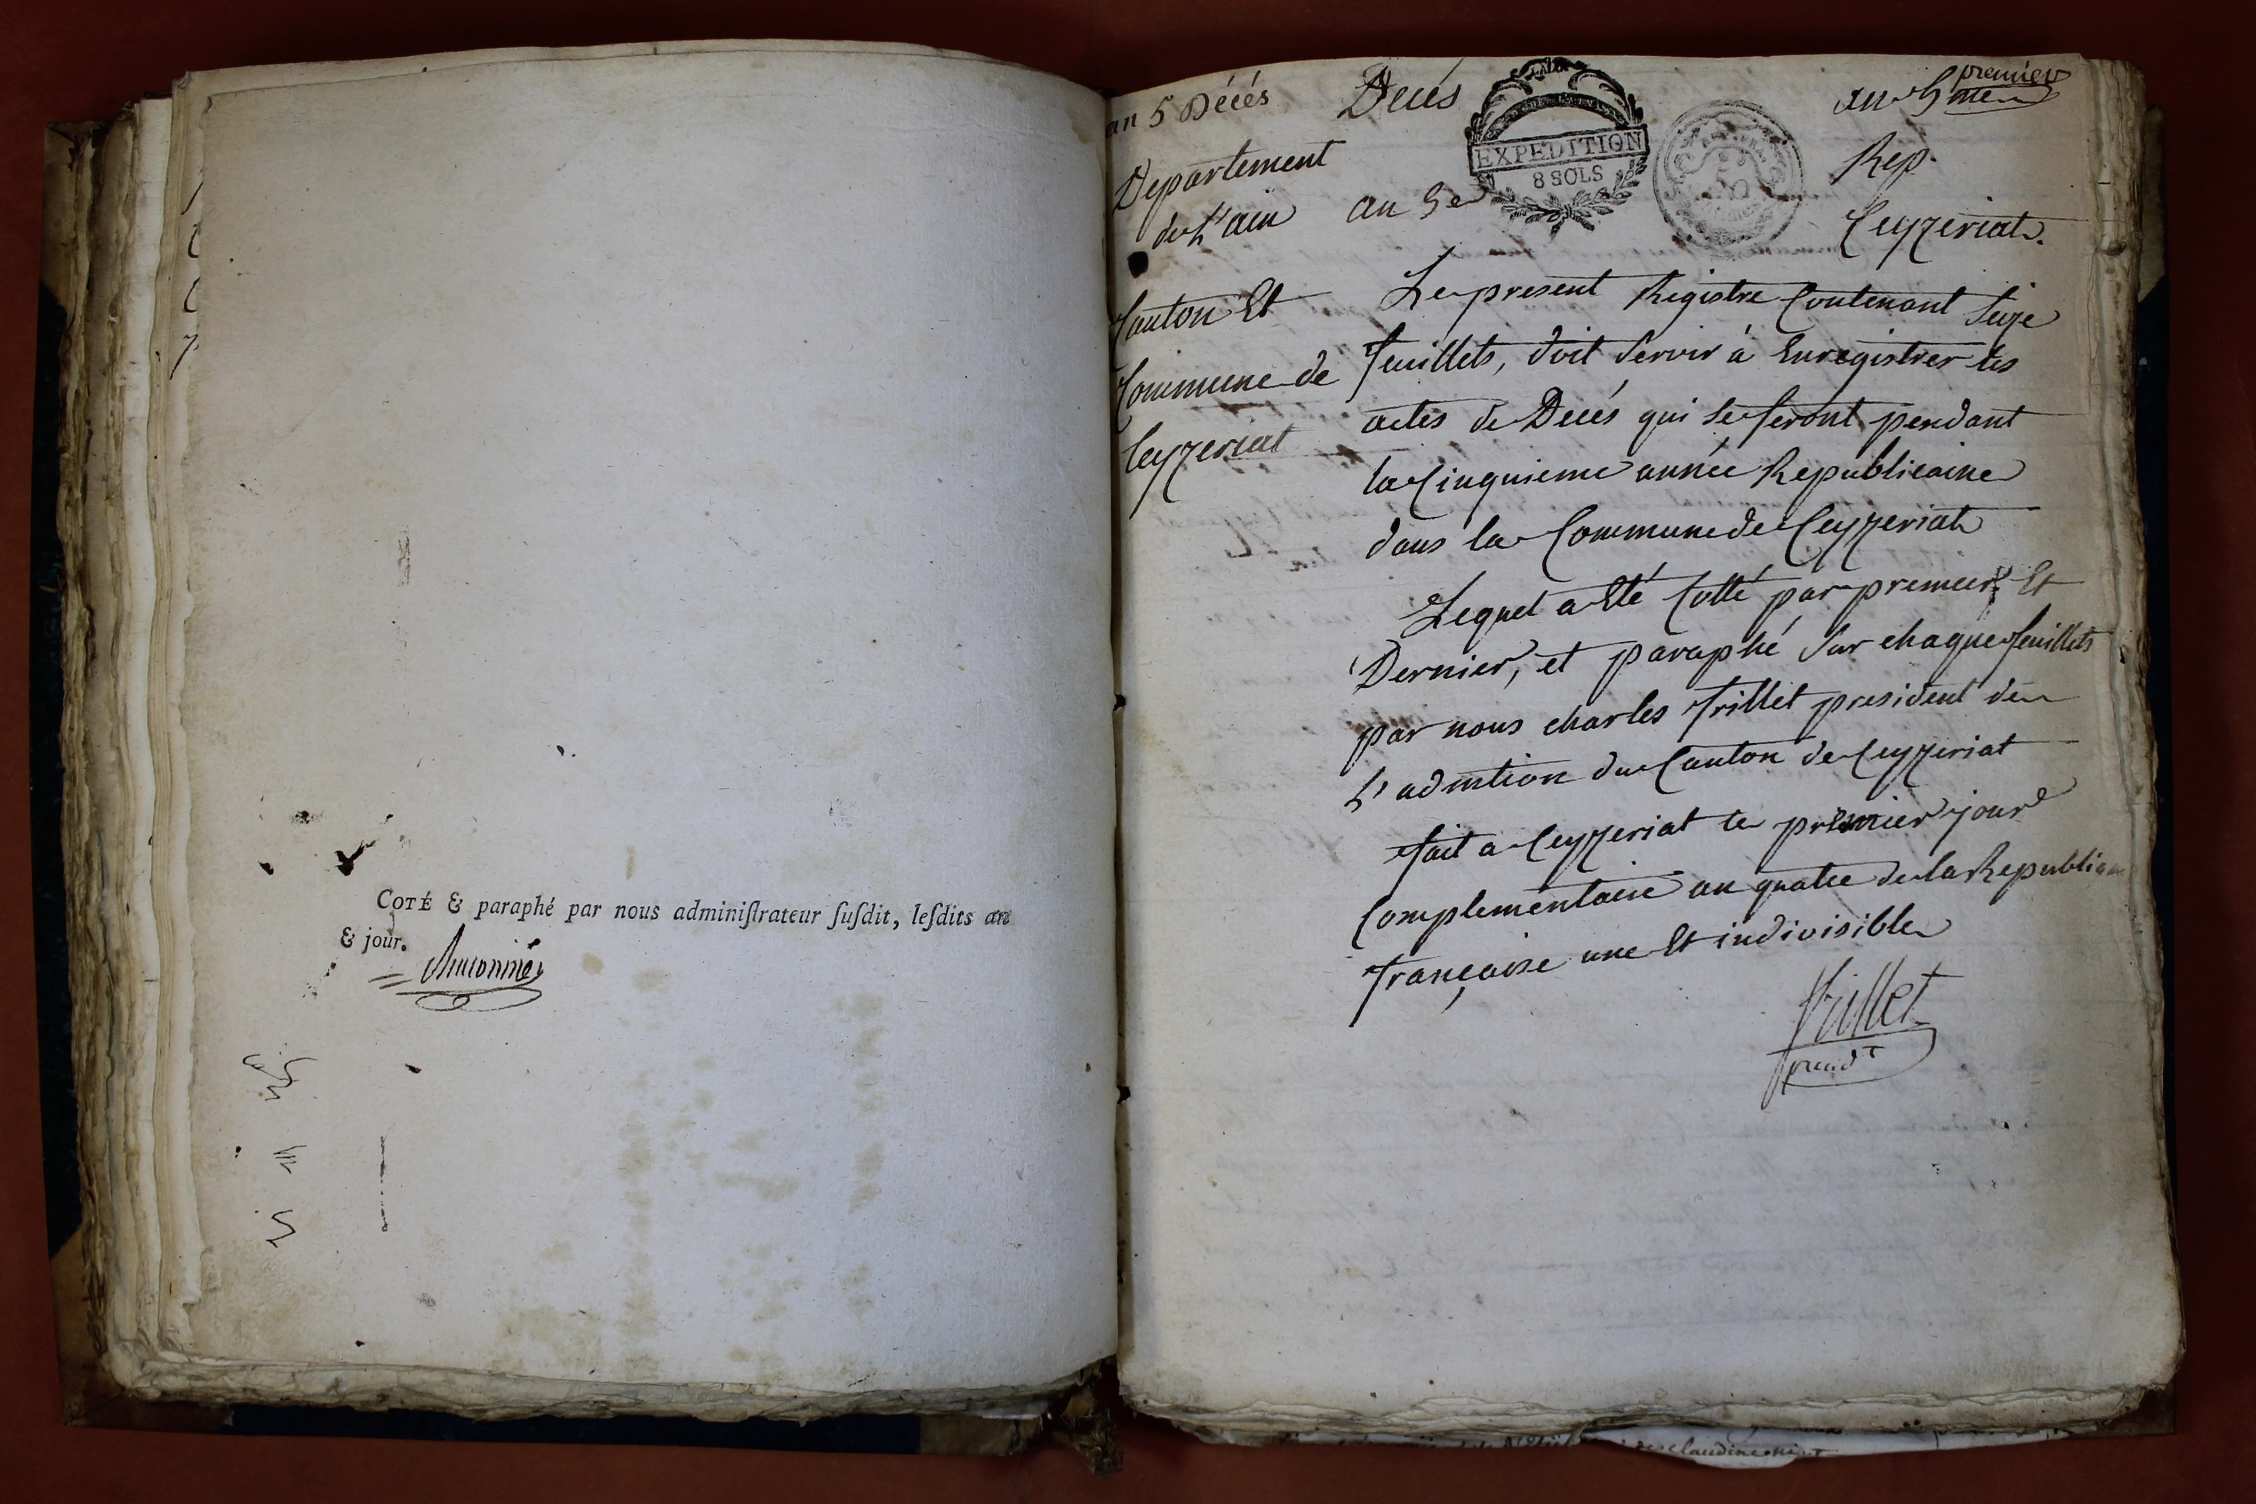 COTÉ & paraphé par nous adminiſtrateur ſuſdit, leſdits an
& jour.
an 5 Décés
Decés
an 5e
premier
Departement
de L'ain
EXPEDITION
8 SOLS
Rep.
Ceyzeriat.
Canton Et
Commune de
Ceyzeriat
Le present Registre Contenant Seize
feuillets, doit Servir à Enregistrer les
actes de Decés qui se feront pendant
la Cinquieme année Republicaine
dans la Commune de Ceyzeriat
Lequel a Eté Cotté par premier Et
Dernier, et paraphé Sur chaque feuillets
par nous charles frillet president de
L'admtion du Canton de Ceyzeriat
fait a Ceyzeriat le premier jour
Complementaire an quatre de la Republique
française une Et indivisible
frillet
presdt